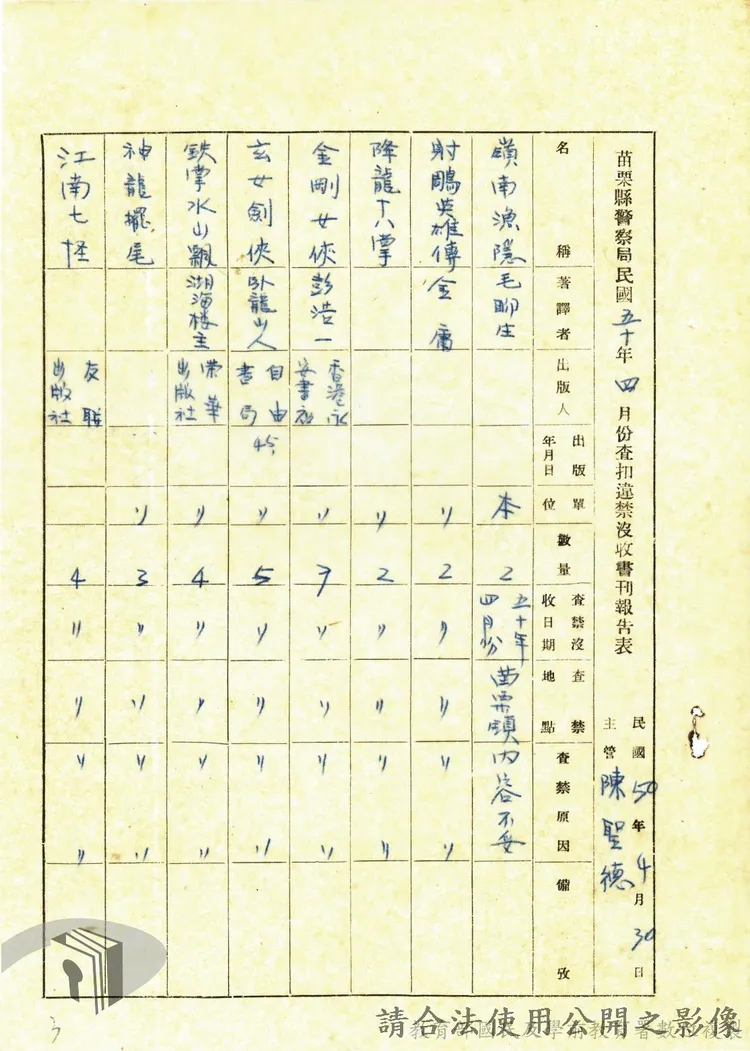 苗栗縣警察局民國五十年四月份查扣違禁沒收書刊報告表
民國50年4月30日
主管 陳聖德
名稱 著譯者 出版人 出版年月日 單位 數量 查禁沒收日期 查禁地點 查禁原因 備攷
嶺南漁隱 毛聊生 本 2 五十年四月份 苗栗鎮 內容不妥
射鵰英雄傳 金庸 〃 2 〃 〃 〃 〃
降龍十八掌 〃 2 〃 〃 〃 〃
金剛女俠 彭浩一 香港永安書局 〃 7 〃 〃 〃 〃
玄女劍俠 臥龍山人 自由書局 45 〃 5 〃 〃 〃 〃
鉄掌水山飄 湖海楼主 榮華出版社 〃 4 〃 〃 〃 〃
神龍擺尾 〃 3 〃 〃 〃 〃
江南七怪 友聯出版社 4 〃 〃 〃 〃
3
請合法使用公開之影像
教育部國民及學前教育署數位複製